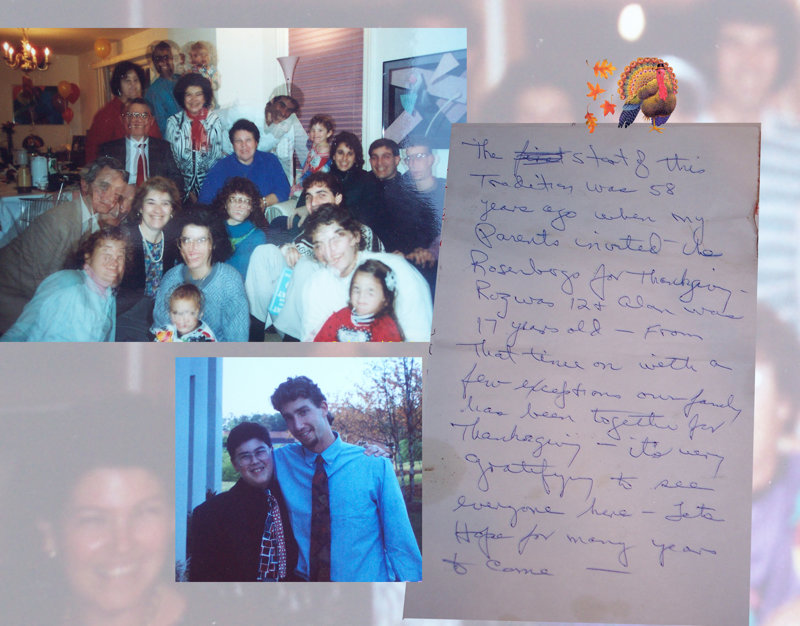 The first start of this
Tradition was 58
years ago when my
Parents invited the
Rosenbergs for Thanksgiving -
Roz was 12 & Alan was
17 years old - From
that time on with a
few exceptions our family
has been together for
Thanksgiving - its very
gratifying to see
everyone here - Lets
Hope for many years
to come —